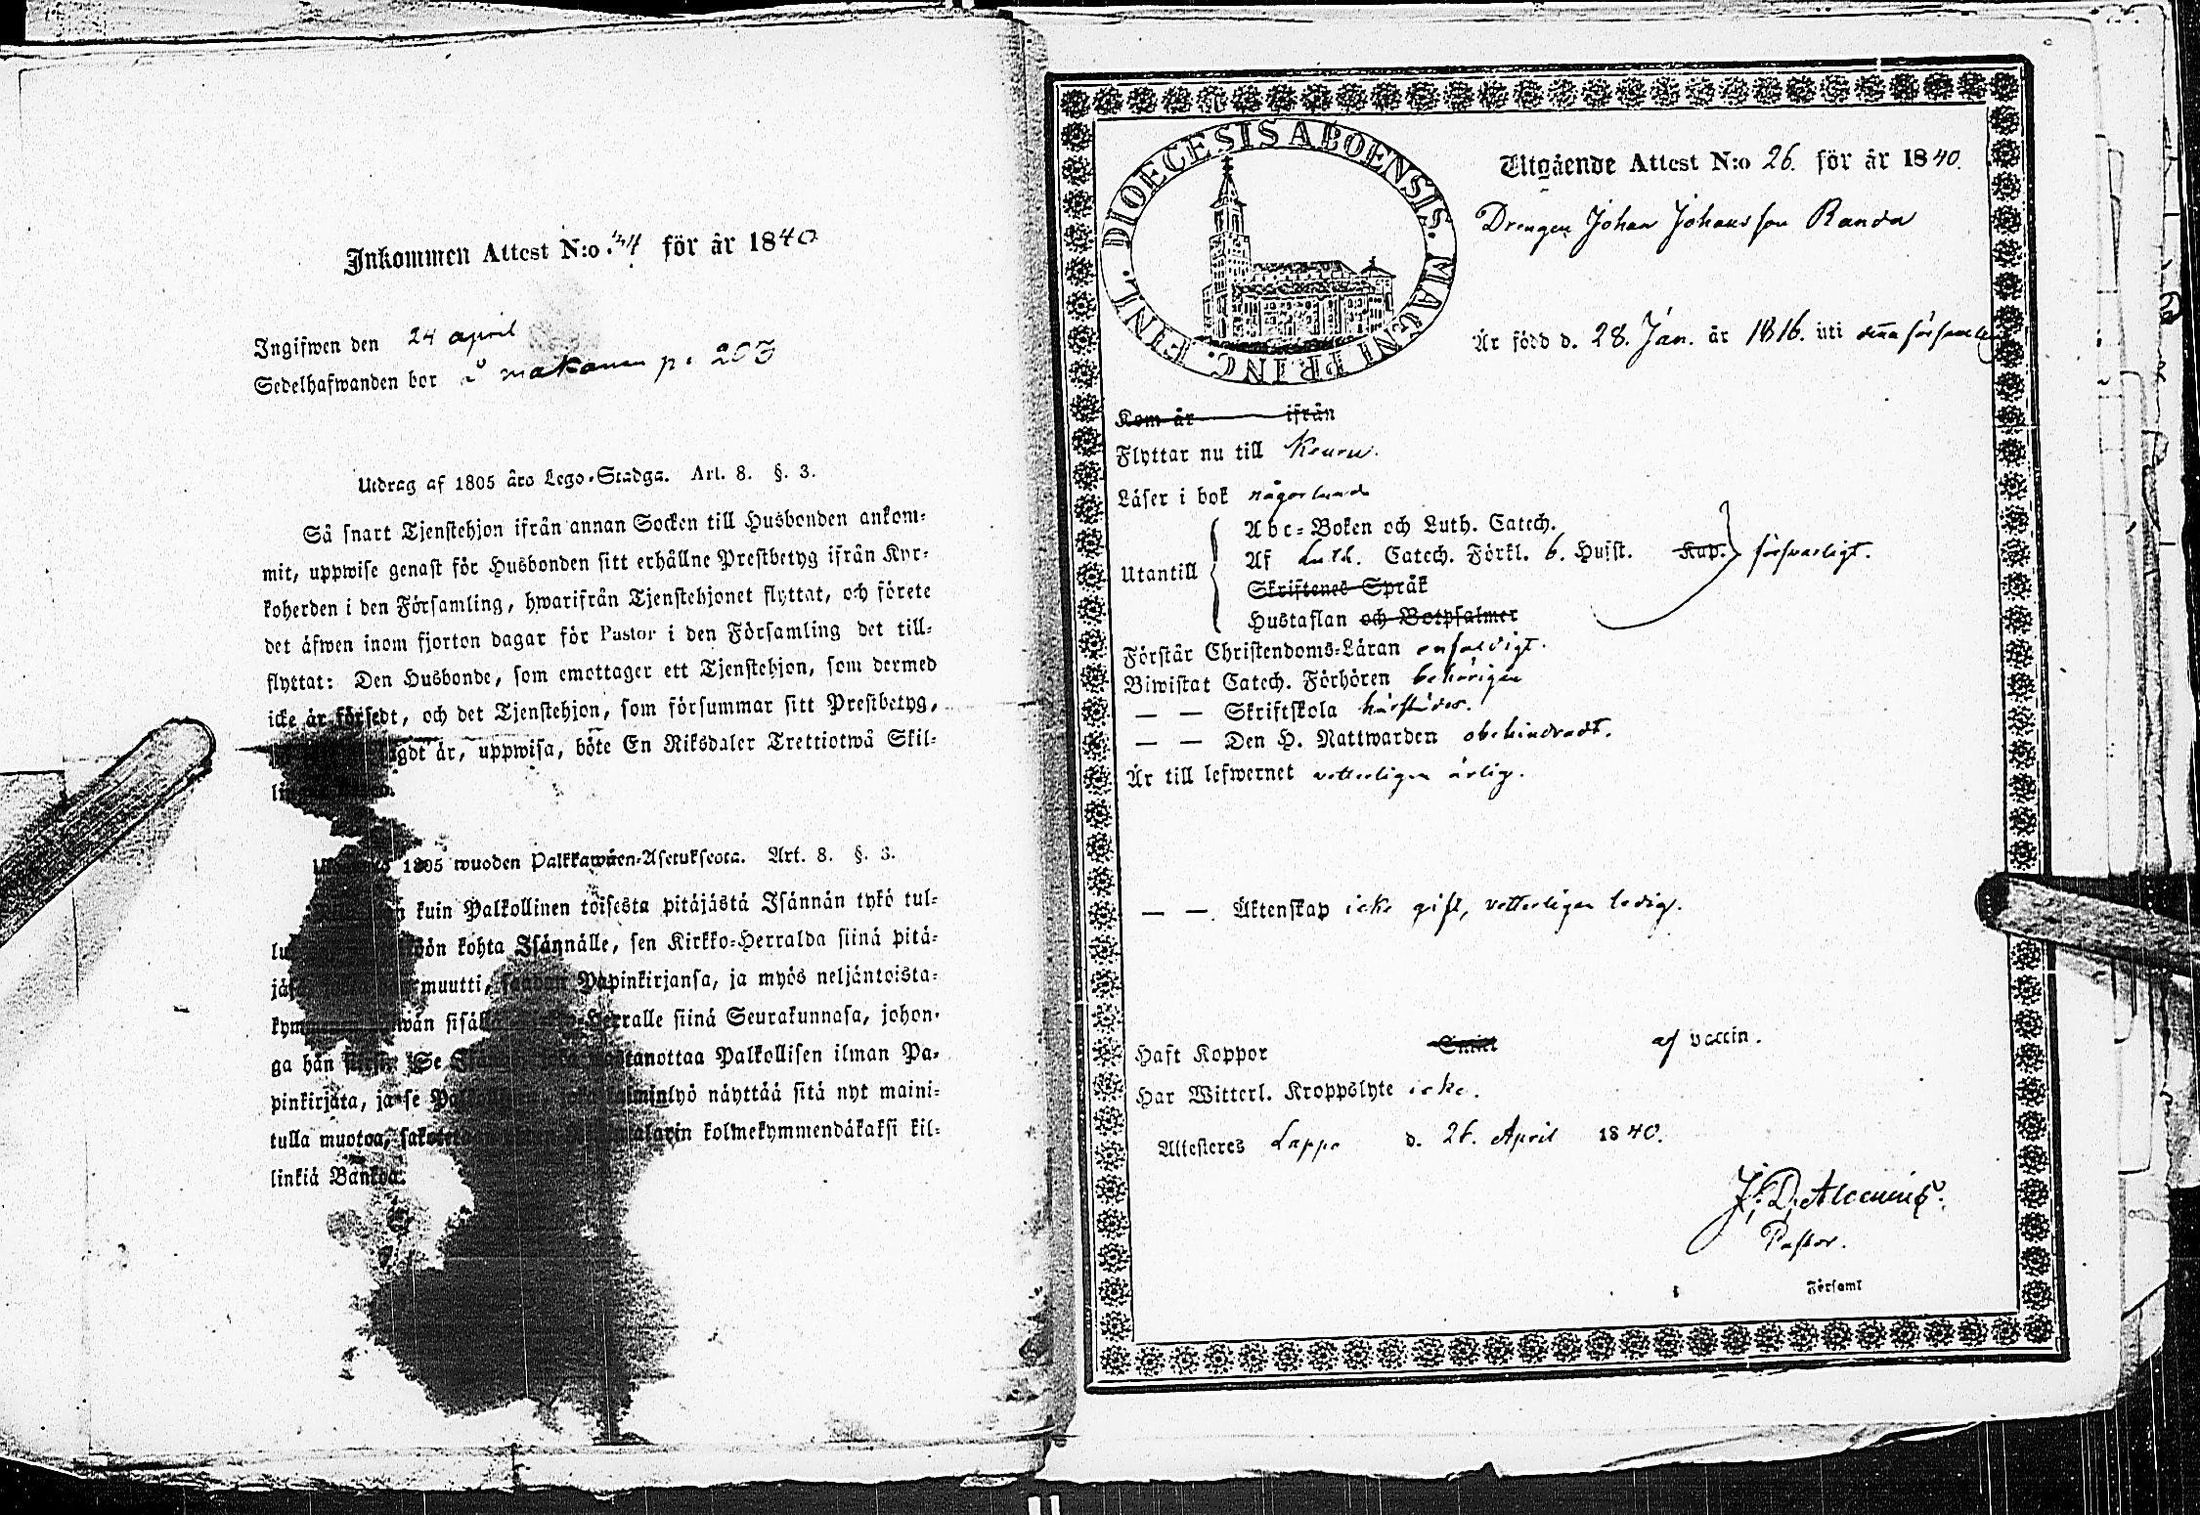 Inkommen Attest N:o 34 för år 1840
Ingifwen den 24 april
Sedelhafwanden bor å makanen p. 203
Utdrag af 1805 års Lego-Stadga. Art. 8. §. 3.
Så snart Tjenstehjon ifrån annan Socken till Husbonden ankom-
mit, uppwise genast för Husbonden sitt erhållne Prestbetyg ifrån Kyr-
koherden i den Församling, hwarifrån Tjenstehjonet flyttat, och förete
det äfwen inom fjorton dagar för Pastor i den Församling det till-
flyttat: Den Husbonde, som emottager ett Tjenstehjon, som dermed
icke är försedt, och det Tjenstehjon, som försummar sitt Prestbetyg,
gdt är, uppwisa, böte En Riksdaler Trettiotwå Skil-
1805 wuoden Palkkawäen-Asetuksesta. Art. 8. §. 3.
kuin Palkollinen toisesta pitäjästä Isännän tykö tul-
kohta Isännälle, sen Kirkko-Herralda siinä pitä-
muutti, saadun Papinkirjansa, ja myös neljäntoista-
sisällä Herralle siinä Seurakunnasa, johon-
ga hän Se wastanottaa Palkollisen ilman Pa-
pinkirjata, ja se laiminlyö näyttää sitä nyt maini-
tulla muotoa, kolmekymmendäkaksi kil-
linkiä Bankoa.
DIOECESIS ABOENSIS. MAGNI PRINC. FINL.
Utgående Attest N:o 26. för år 1840.
Drengen Johan Johansson Randa
Är född d. 28. Jan. år 1816. uti denna församling
Kom år ifrån
Flyttar nu till Keuru.
Läser i bok någorlunda
Abc-Boken och Luth. Catech.
Utantill Af Luth. Catech. Förkl. 6. Hufst. Kap. försvarligt.
Skriftenes Språk
Hustaflan och Botpsalmer
Förstår Christendoms-Läran enfaldigt.
Biwistat Catech. Förhören behörigen
— — Skriftskola härstädes.
— — Den H. Nattwarden obehindradt.
Är till lefwernet vetterligen ärlig.
— — Äktenskap icke gift, vetterligen ledig.
Haft Koppor Smitt af vaccin.
Har Witterl. Kroppslyte icke.
Attesteres Lappo d. 26. April 1840.
Pastor.
Församl